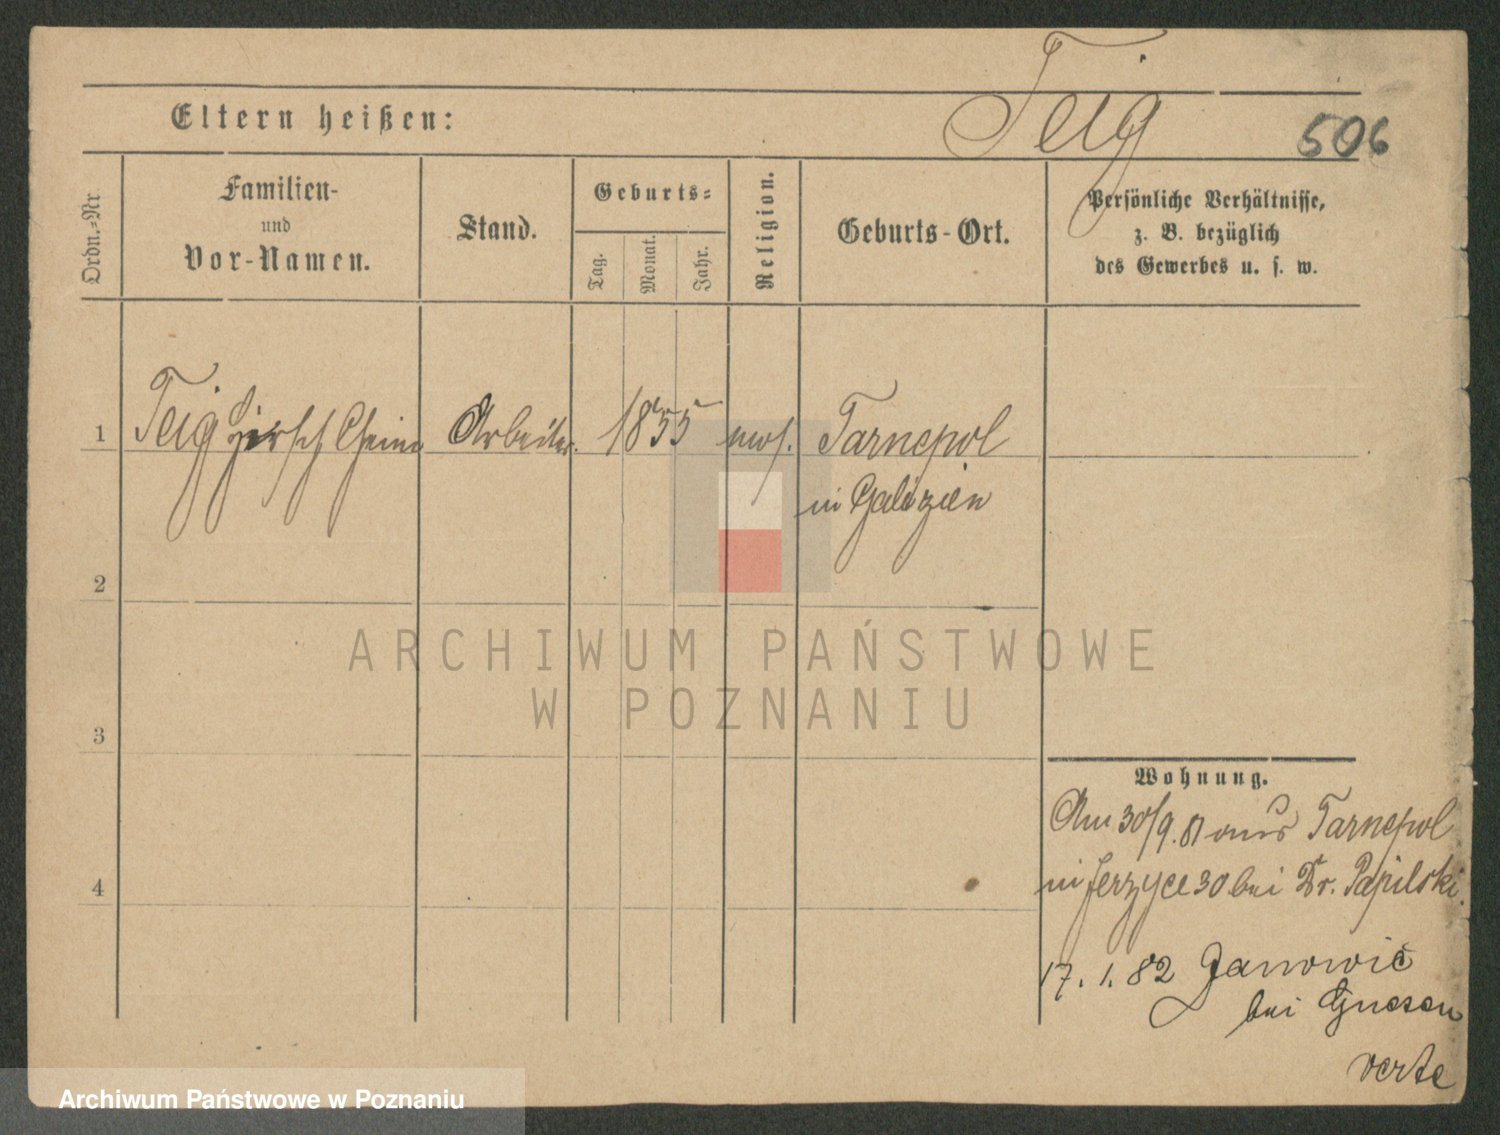 Teig
506
Eltern heißen:
Ordn.-Nr.
Familien-
und
Vor-Namen.
Stand.
Geburts-
Tag.
Monat.
Jahr.
Religion.
Geburts-Ort.
Persönliche Verhältnisse,
z. B. bezüglich
des Gewerbes u. s. w.
1 Teig Hirsch Cheim Arbeiter. 1855 mos. Tarnopol
in Galizien
2
3
4
Wohnung.
Am 30/9. 81 aus Tarnopol
in Jerzyce 30 bei Dr. Papilski.
17. 1. 82 Janowic
bei Gnesen
verte
ARCHIWUM PAŃSTWOWE
W POZNANIU
Archiwum Państwowe w Poznaniu